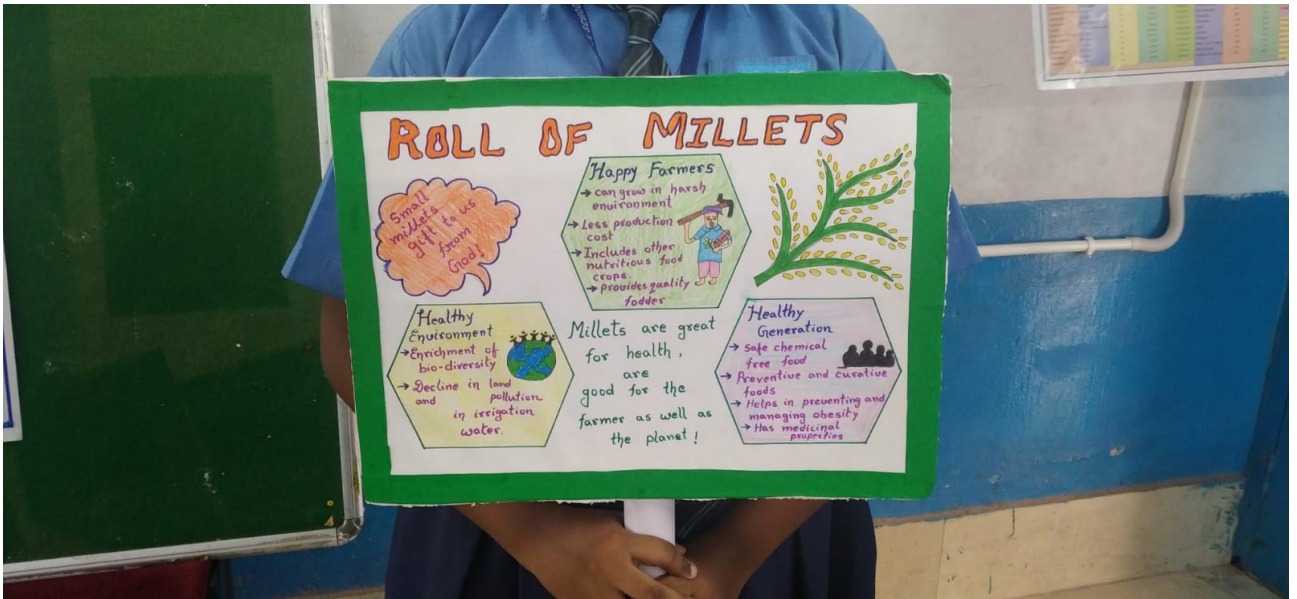 ROLL OF MILLETS
Small
millets
gift to us
from
God!
Happy Farmers
→ can grow in harsh
environment
→ Less production
cost
→ Includes other
nutritious food
crops.
→ Provides quality
fodder
Healthy
Environment
→ Enrichment of
bio-diversity
→ Decline in land
and pollution
in irrigation
water.
Millets are great
for health,
are
good for the
farmer as well as
the planet!
Healthy
Generation
→ Safe chemical
free food
→ Preventive and curative
foods
→ Helps in preventing and
managing obesity
→ Has medicinal
properties